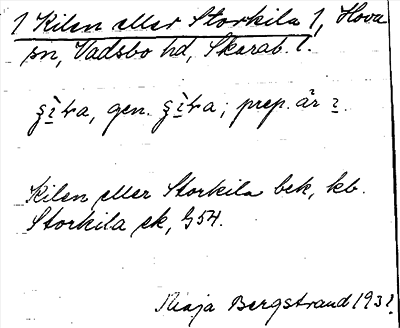 1 Kilen eller Storkila 1, Hova
sn, Vadsbo hd, Skarab. l.
gen. prep. är
Kilen eller Storkila bek, kb.
Storkila ek, G54.
Maja Bergstrand 193